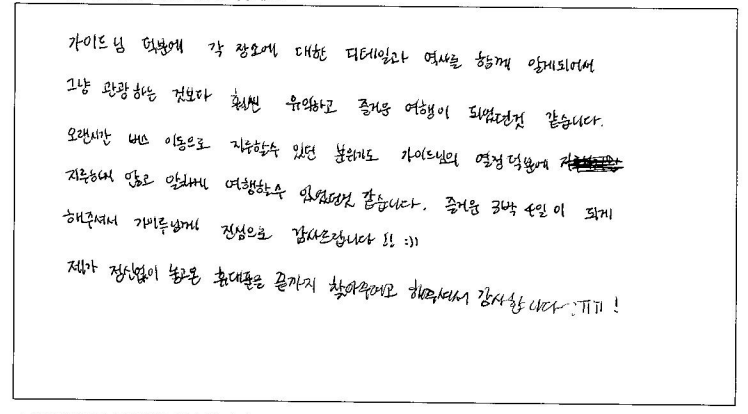 가이드님 덕분에 각 장소에 대한 디테일과 역사를 함께 알게되어서
그냥 관광하는 것보다 훨씬 유익하고 즐거운 여행이 되었던것 같습니다.
오랜시간 버스 이동으로 지루할수 있던 분위기도 가이드님의 열정덕분에
지루하지 않고 알차게 여행할수 있었던것 같습니다. 즐거운 3박 4일이 되게
해주셔서 가이드님께 진심으로 감사드립니다!! :))
제가 정신없이 놓고온 휴대폰을 끝까지 찾아주려고 해주셔서 감사합니다 ㅠㅠ!